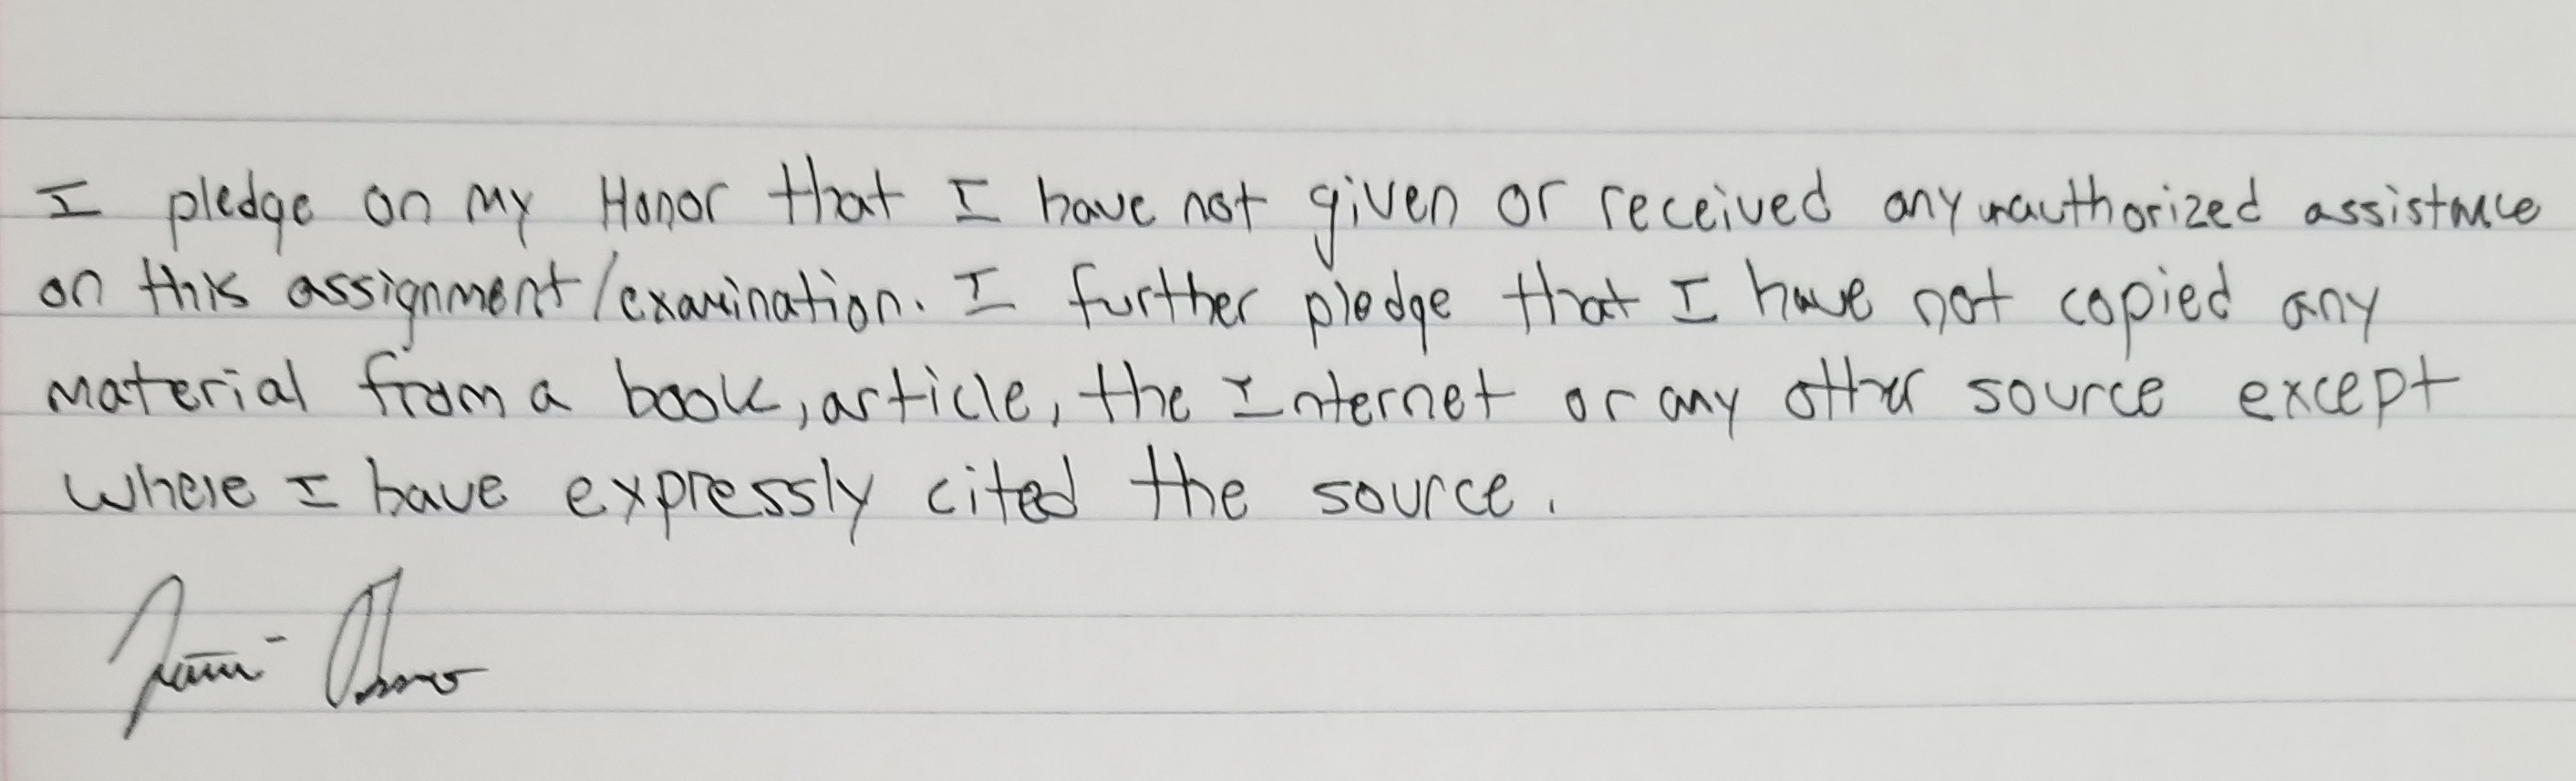 I pledge on my Honor that I have not given or received any unauthorized assistance
on this assignment/examination. I further pledge that I have not copied any
material from a book, article, the Internet or any other source except
where I have expressly cited the source.